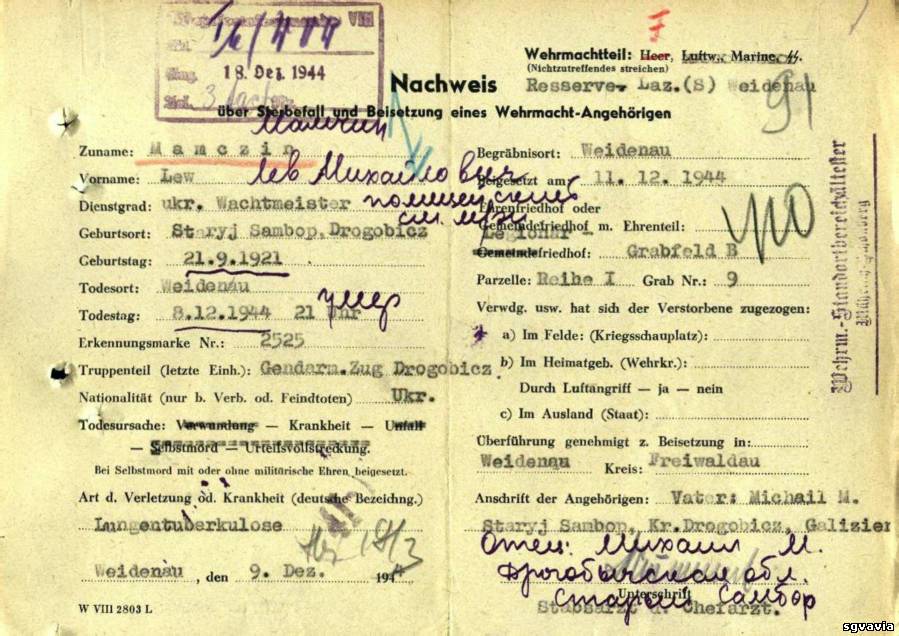 16/404
18. Dez. 1944
Nachweis
über Sterbefall und Beisetzung eines Wehrmacht-Angehörigen
Wehrmachtteil: Heer, Luftw., Marine,
(Nichtzutreffendes streichen)
Resserve- Laz.(S) Weidenau
91
Мамчин
Zuname: Mamczin
Vorname: Lew Лев Михайлович
Dienstgrad: ukr. Wachtmeister полицейский
Geburtsort: Staryj Sambop, Drogobicz
Geburtstag: 21.9.1921
Todesort: Weidenau
умер
Todestag: 8.12.1944 21 Uhr
Erkennungsmarke Nr.: 2525
Truppenteil (letzte Einh.): Gendarm.Zug Drogobicz
Nationalität (nur b. Verb. od. Feindtoten) Ukr.
Todesursache: Verwundung – Krankheit – Unfall
– Selbstmord – Urteilsvollstreckung.
Bei Selbstmord mit oder ohne militärische Ehren beigesetzt.
Art d. Verletzung od. Krankheit (deutsche Bezeichng.)
Lungentuberkulose
Weidenau, den 9. Dez. 194
W VIII 2803 L
Begräbnisort: Weidenau
Beigesetzt am: 11. 12. 1944
Ehrenfriedhof oder
Gemeindefriedhof m. Ehrenteil:
Legionär-
Gemeindefriedhof: Grabfeld B
Parzelle: Reihe I Grab Nr.: 9
Verwdg. usw. hat sich der Verstorbene zugezogen:
a) Im Felde: (Kriegsschauplatz):
b) Im Heimatgeb. (Wehrkr.):
Durch Luftangriff – ja – nein
c) Im Ausland (Staat):
Überführung genehmigt z. Beisetzung in:
Weidenau Kreis: Freiwaldau
Anschrift der Angehörigen: Vater: Michail M.
Staryj Sambop, Kr.Drogobicz, Galizien
Отец: Михаил М.
Дрогобычская обл.
Unterschrift
Старый Самбор
Stabsarzt u. Chefarzt.
Wehrm.-Standortbereichältester
sgvavia